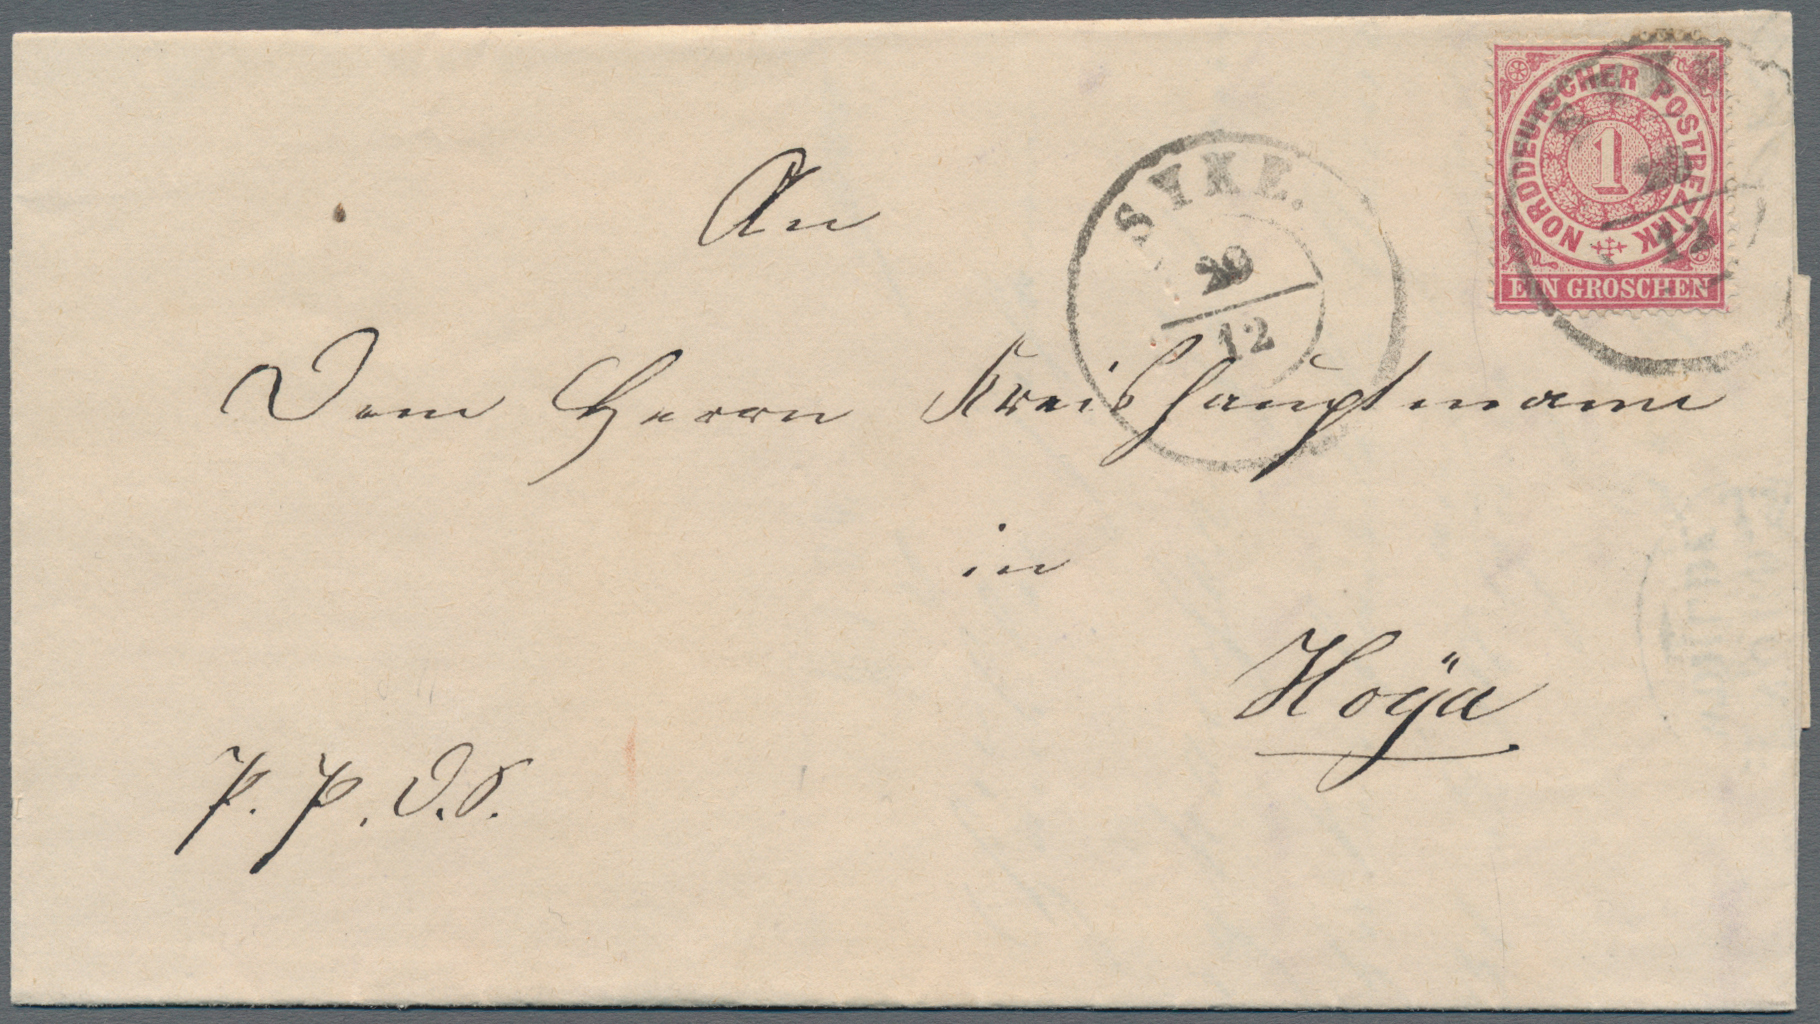 An
Dem Herrn Kreishauptmann
in
Hoÿa
P. P. D. S.
SYKE.
20
12
NORDDEUTSCHER POSTBEZIRK
1
EIN GROSCHEN
12